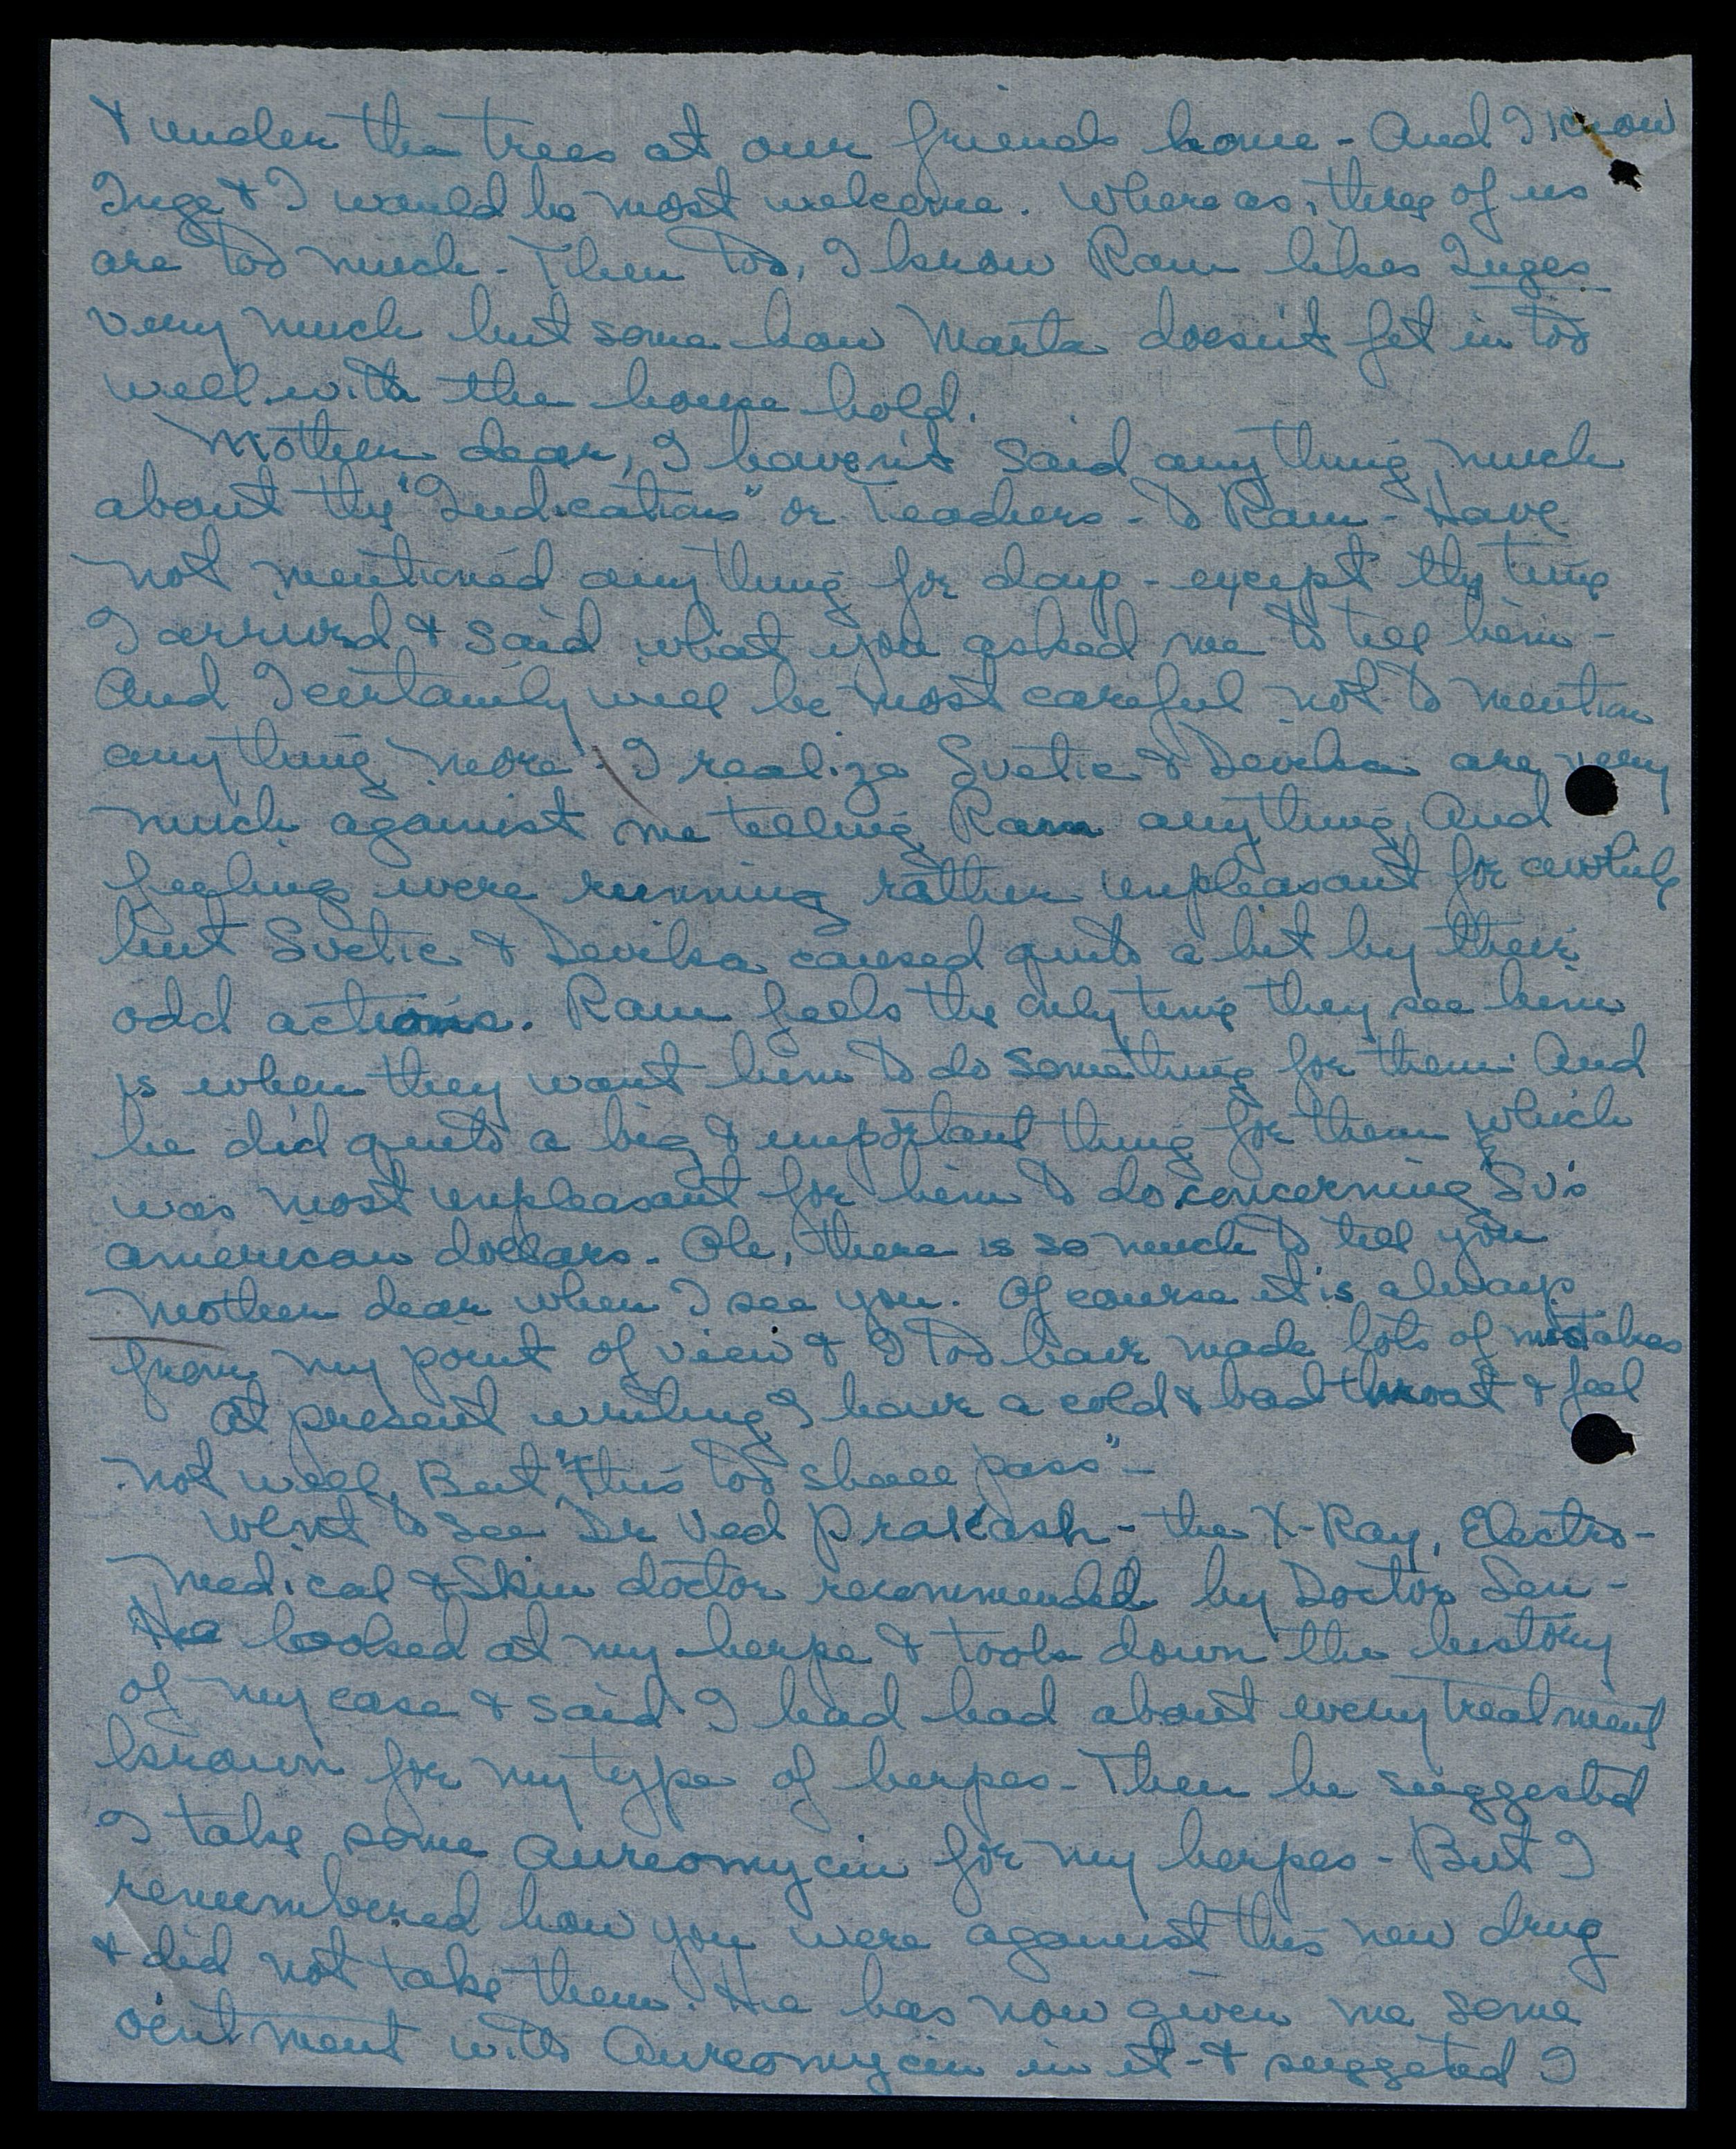 & under the trees at our friends home - And I know
Inge & I would be most welcome. Where as, three of us
are too much - Then too, I know Ram likes Inges
very much but some how Marta doesn't fit in too
well with the house hold.
Mother dear, I haven't said any thing much
about the "Indications" or Teachers - to Ram - Have
not mentioned any thing for days - except the time
I arrived & said what you asked me to tell him -
And I certainly will be most careful not to mention
any thing more. I realize Svetic & Devika are very
much against me telling Ram any thing. And
feelings were running rather unpleasant for awhile
but Svetic & Devika caused quite a bit by their
odd actions. Ram feels the only time they see him
is when they want him to do something for them. And
he did quite a big & important thing for them which
was most unpleasant for him to do concerning Sv's
american dollars. Oh, there is so much to tell you
Mother dear when I see you. Of course it is always
from my point of view & I too have made lots of mistakes
At present writing I have a cold & bad throat & feel
not well. But "this too shall pass" -
Went to see Dr Ved Prakash - the X-Ray, Electro-
medical & Skin doctor recommended by Doctor Sen -
He looked at my herpe & took down the history
of my case & said I had had about every treatment
known for my type of herpes - Then he suggested
I take some Aureomycin for my herpes - But I
remembered how you were against this new drug
& did not take them. He has now given me some
ointment with Aureomycin in it - & suggeted I